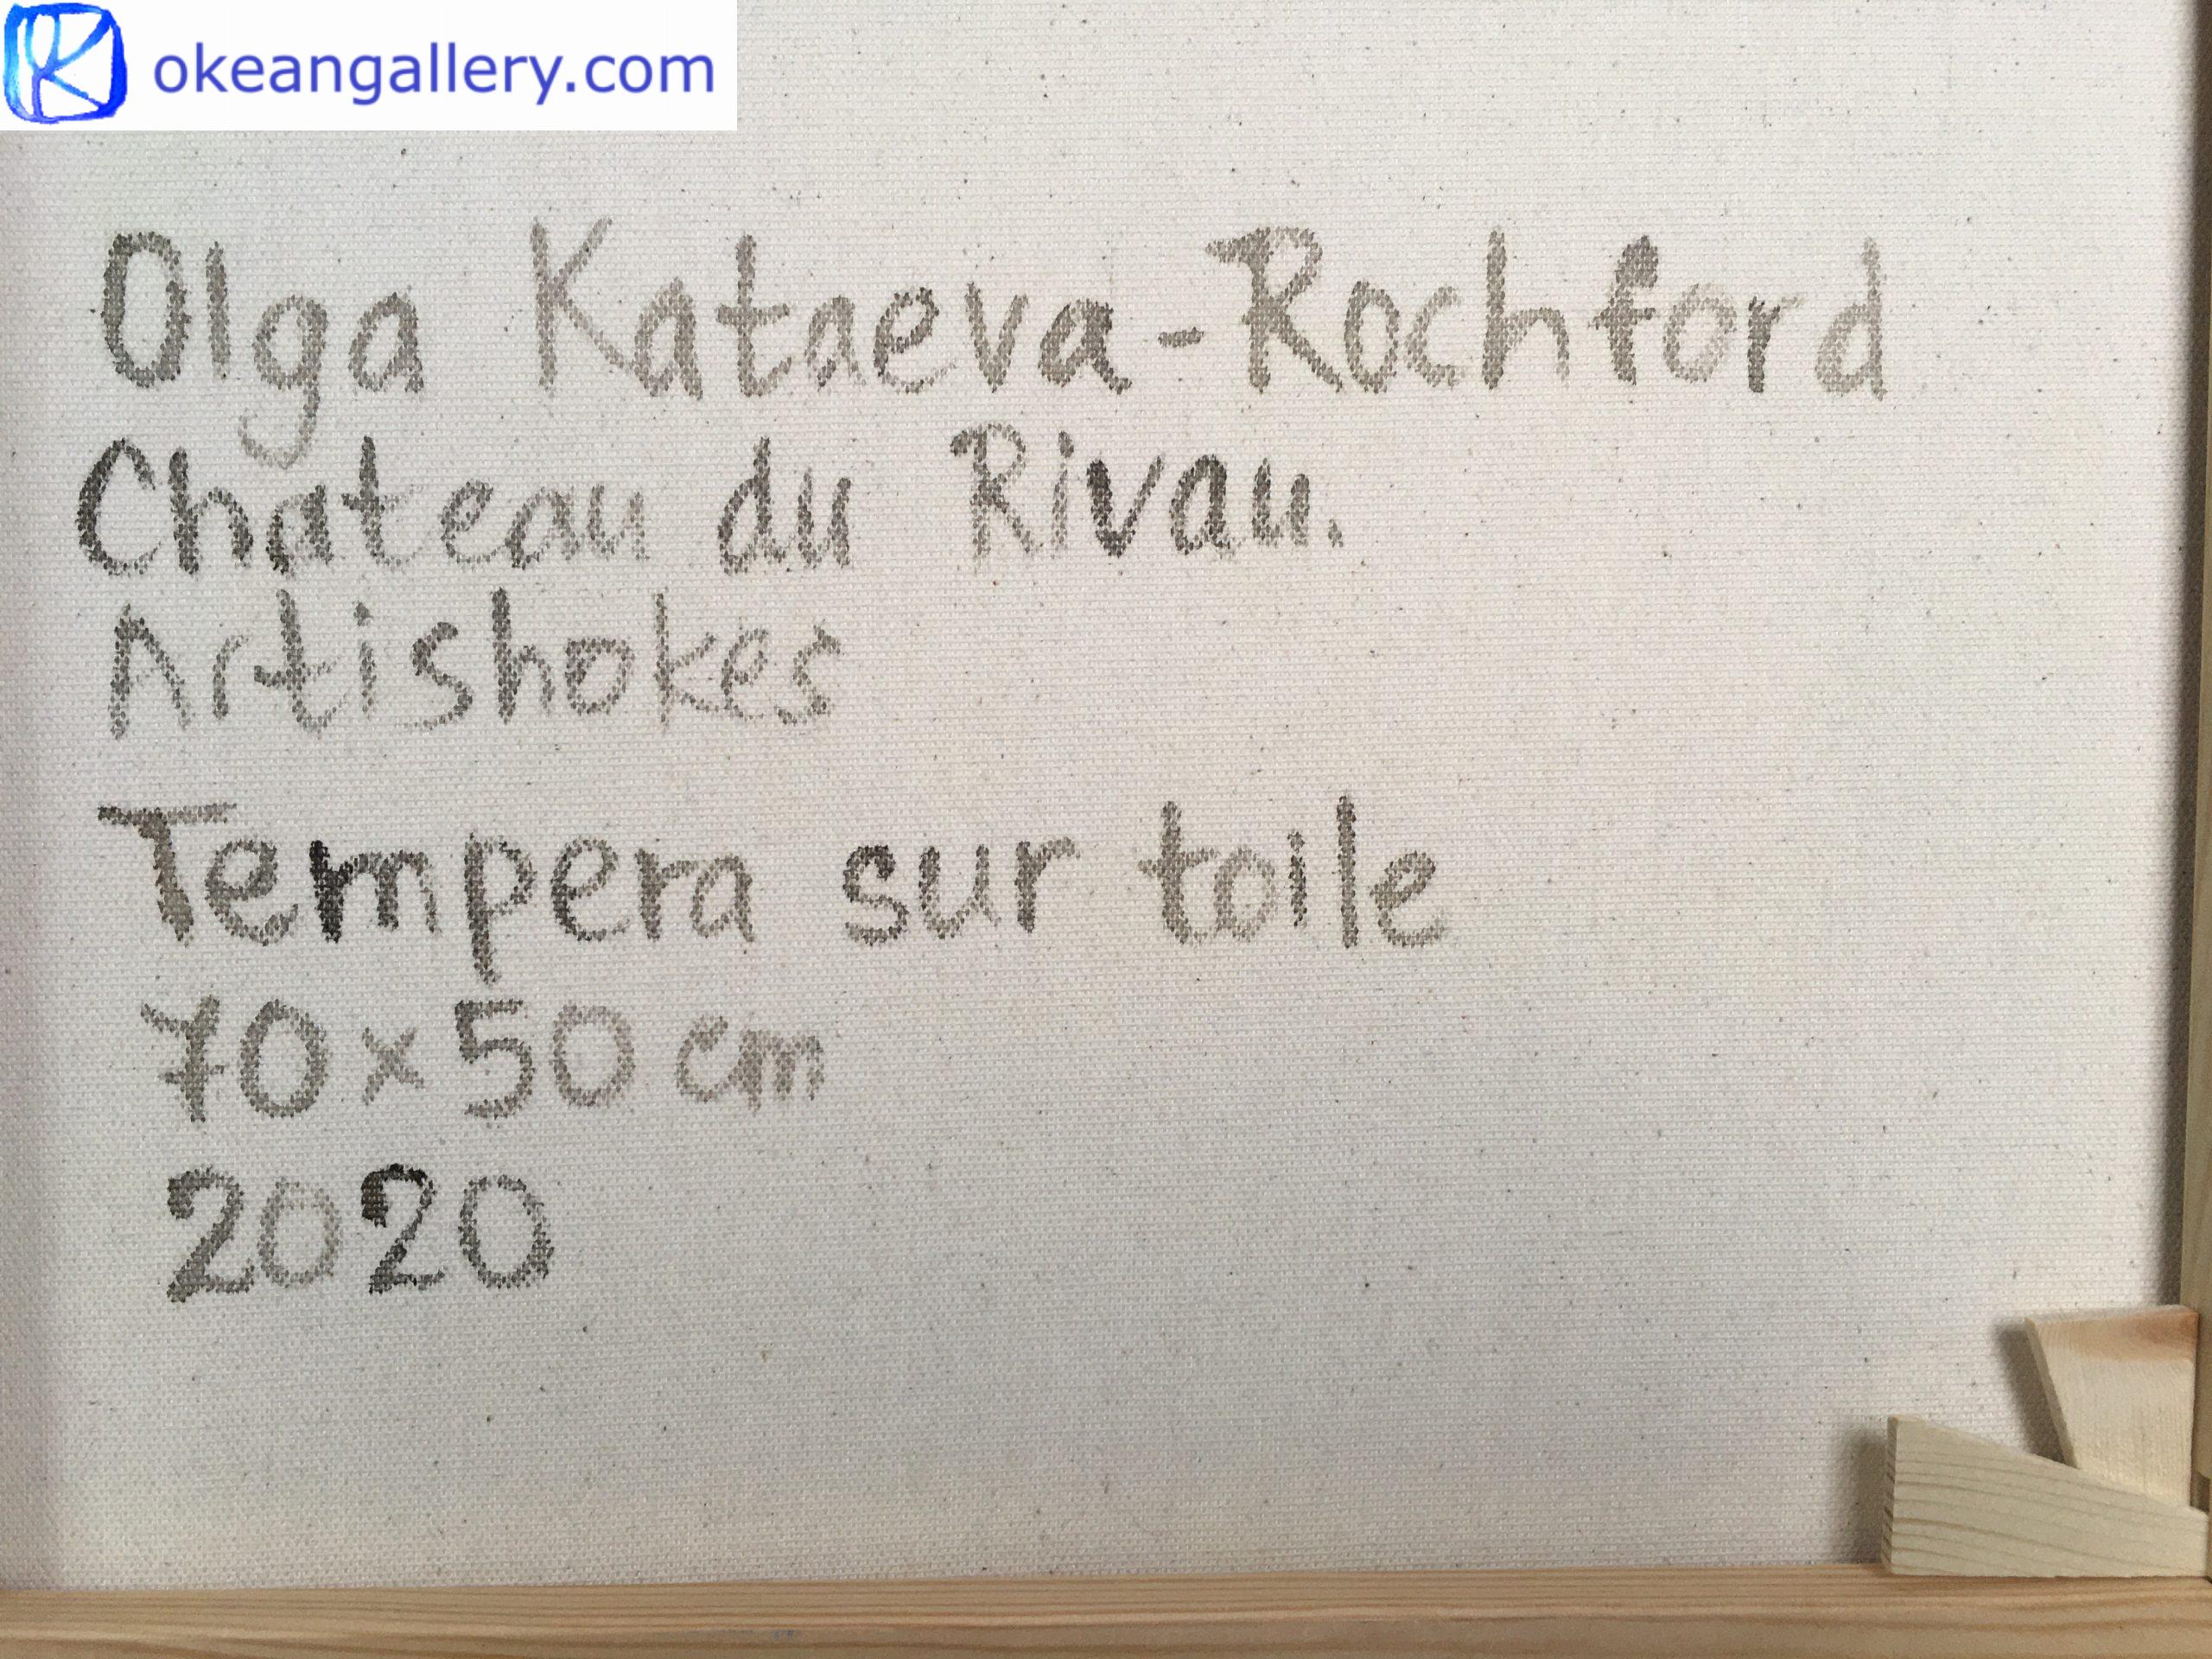 okeangallery.com
Olga Kataeva-Rochford
Chateau du Rivau.
Artishokes
Tempera sur toile
70 x 50 cm
2020